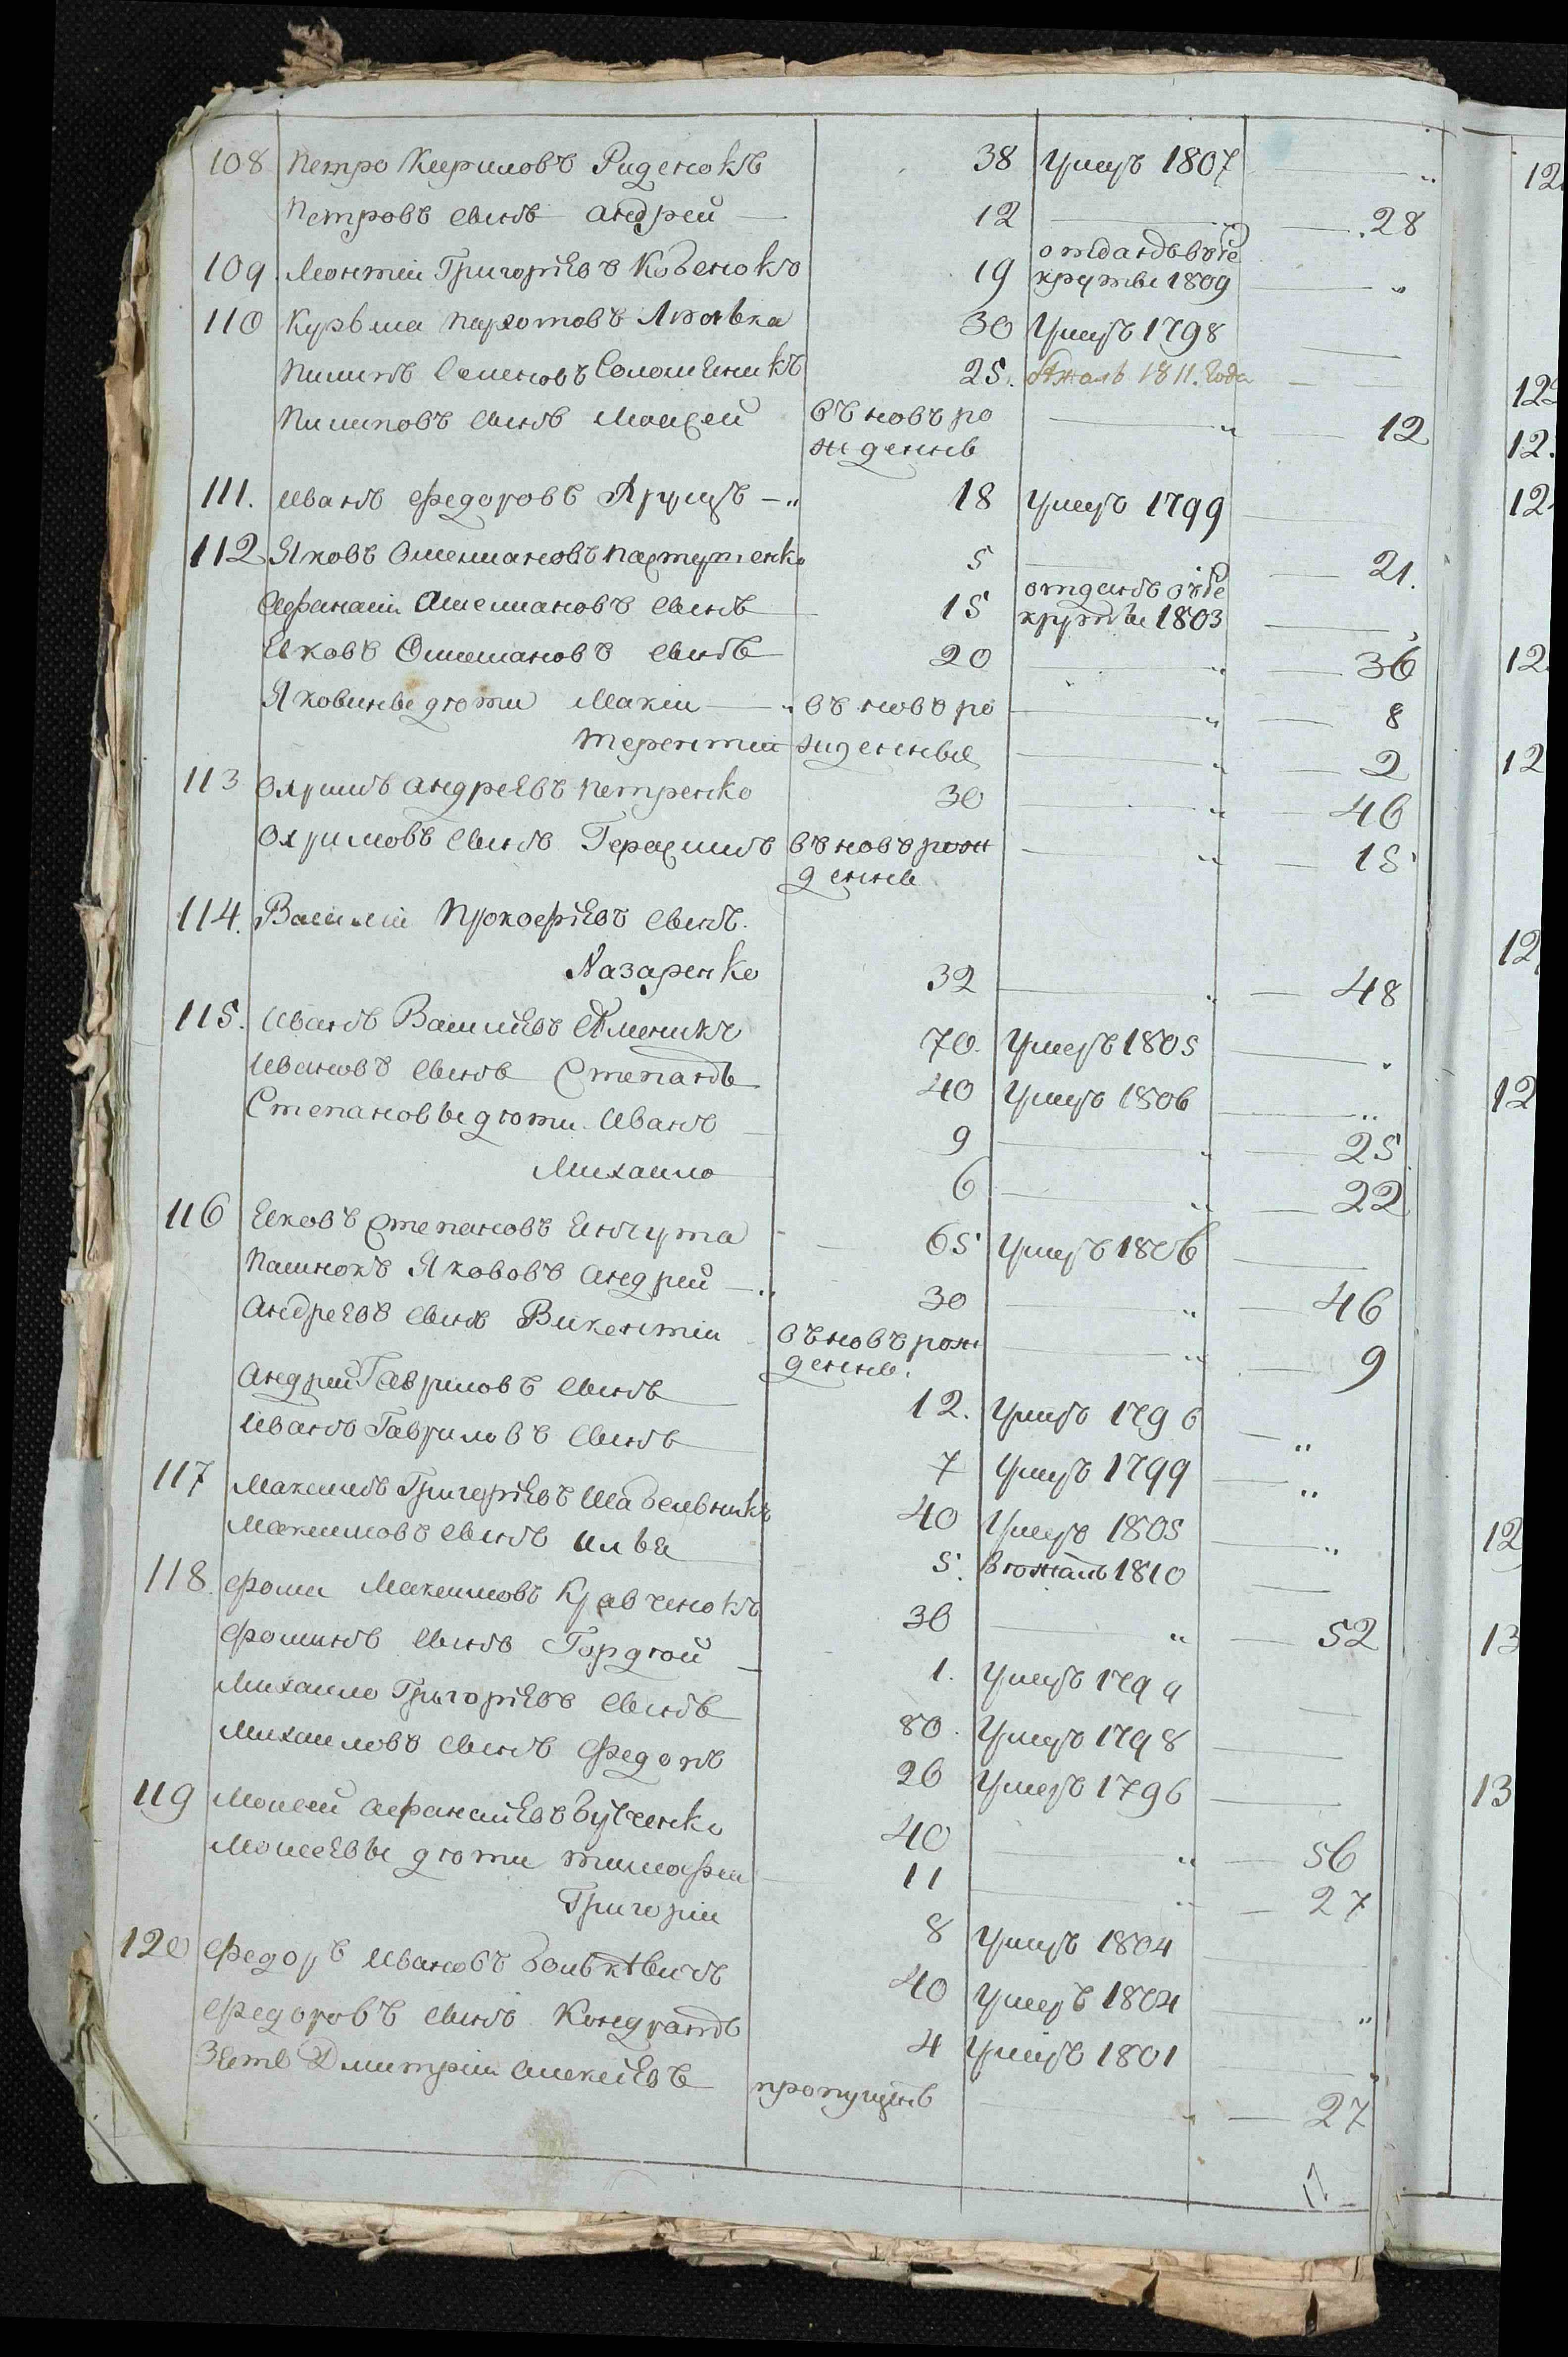 108 Петро Кириловъ Риденокъ 38 умеръ 1807 — „
Петровъ сынъ Андрей — 12 — „ — 28
109 Леонтiй Григорiевъ Кобенокъ 19 отданъ въ ре
круты 1809 — „
110 Курьма Пархомовъ 30 умеръ 1798 —
Пилипъ Семеновъ Соломеникъ 25. бѣжалъ 1811. года —
Пилиповъ сынъ Моисей въновъ ро — „ — 12
жденнъ
111. Иванъ Федоровъ Ярушъ — „ 18 умеръ 1799 —
112 Яковъ Омельяновъ Пастушенко 5 — „ — 21.
Афанасiй Амельяновъ сынъ 15 отданъ въ ре
круты 1803 —
Яковъ Омельяновъ сынъ 20 — „ — 36
Яковины дѣти Макiи — „ въновъ ро — „ — 8
Терентiй жденны — „ — 2
113 Охримъ Андреевъ Петренко 30 — „ — 46
Охримовъ сынъ Герасимъ въновъ рож — „ — 15
деннъ
114. Василiй Прокофiевъ сынъ.
Назаренко 32 — „ — 48
115. Иванъ Василiевъ 70. умеръ 1805 — „
Ивановъ сынъ Степанъ 40 умеръ 1806 — „
Степановы дѣти Иванъ — 9 — „ — 25
Михаило 6 — „ — 22
116 Яковъ Степановъ 65 умеръ 1806 —
Пасинокъ Яковов Андрей — „ 30 — „ — 46
Андреевъ сынъ Викентiи въновъ рож — „ — 9
деннъ.
Андрей Гавриловъ сынъ 12. умеръ 1796 — „
Иванъ Гавриловъ сынъ 7 умеръ 1799 — „
117 Максимъ Григорiевъ Шабельникъ 40 умеръ 1805 — „
Максимовъ сынъ Илья 5. 1810 —
118. Фома Максимовъ Кравченокъ 30 — „ — 52
Фоминъ сынъ Гордѣй — 1. умеръ 1799 —
Михаило Григорiевъ сынъ 80. умеръ 1798 —
Михаиловъ сынъ Федотъ 26 умеръ 1796 —
119 Моисей Афанасiевъ 40 — „ — 56
Моисеевы дѣти Тимофеи 11 — „ — 27
Григорiи 8 умеръ 1804
120 Федоръ Ивановъ 40 умеръ 1804 — „
Федоровъ сынъ Кондратъ 4 умеръ 1801 — „
Зять Дмитрiи Алексѣевъ пропущенъ — „ — 27